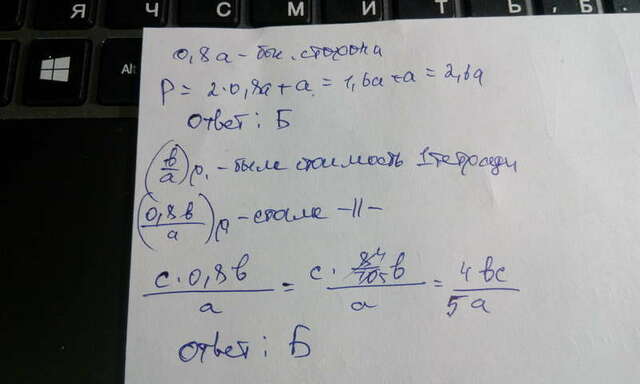 Я Ч С М И Т Ь , Б .
Alt
0,8a - бок. сторона
P = 2·0,8a + a = 1,6a + a = 2,6a
Ответ: Б
(b/a) р. - была стоимость 1 тетради
(0,8b/a) р - стала -||-
c·0,8b/a = c·8 4/10 5 b/a = 4bc/5a
Ответ: Б